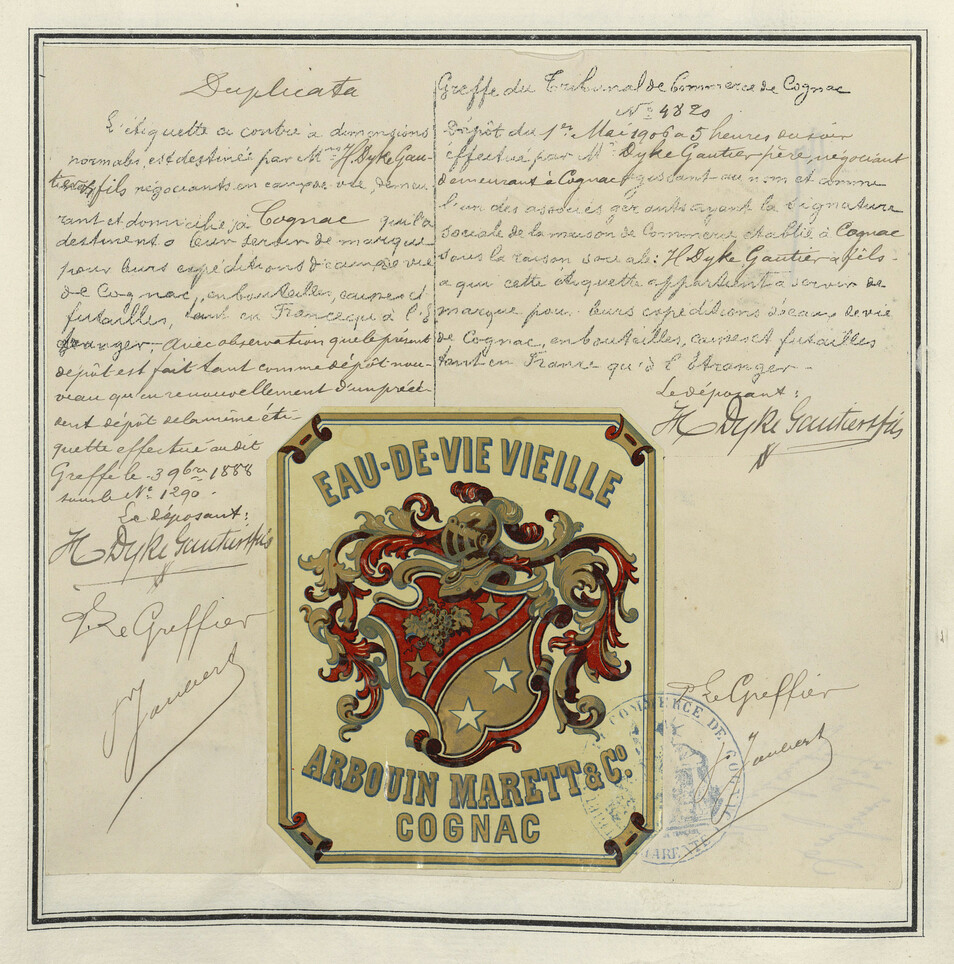 Duplicata
L'étiquette ci contre à dimensions
normales, est destinée par Mrs H Dyke Gau-
tier & fils négociants en eau-de-vie, demeu-
rant et domiciliés à Cognac qui la
destinent à leur servir de marque
pour leurs expéditions d'eau de vie
de Cognac, en bouteilles, caisses et
futailles, tant en France qu'à l'É
tranger. Avec observation que le présent
dépôt est fait tant comme dépôt nou-
veau qu'en renouvellement d'un précé-
dent dépôt de la même éti-
quette effectué audit
Greffe le 3 9bre 1888
sous le No 1290.
Le déposant:
H Dyke Gautier & fils
P. Le Greffier
Greffe du Tribunal de Commerce de Cognac
No 4820
Dépôt du 1er Mai 1906 à 5 heures du soir
effectué par Mr Dyke Gautier père, négociant
demeurant à Cognac, agissant au nom et comme
l'un des associés gérants ayant la signature
sociale de la maison de Commerce établie à Cognac
sous la raison sociale: H Dyke Gautier & fils -
à qui cette étiquette appartient à servir de
marque pour leurs expéditions d'eaux de vie
de Cognac, en bouteilles, caisses et futailles
tant en France qu'à l'Étranger -
Le déposant:
H Dyke Gautier & fils
P. Le Greffier
EAU-DE-VIE VIEILLE
ARBOUIN MARETT & Co.
COGNAC
COMMERCE DE COGNAC